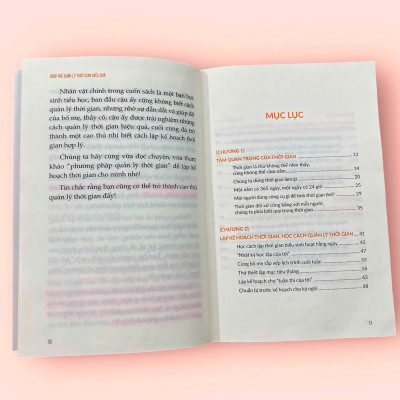 GIÚP BÉ QUẢN LÝ THỜI GIAN HIỆU QUẢ
Nhân vật chính trong cuốn sách là một bạn học
sinh tiểu học, ban đầu cậu ấy cũng không biết cách
quản lý thời gian, nhưng nhờ sự dẫn dắt và giúp đỡ
của bố mẹ, thầy cô, cậu ấy được trải nghiệm nhưng
cách quản lý thời gian hiệu quả, cuối cùng đã trở
thành một cao thủ nhí biết cách lập kế hoạch thời
gian hợp lý.
Chúng ta hãy cùng vừa đọc chuyện, vừa tham
khảo "phương pháp quản lý thời gian" để lập kế
hoạch cho mình nhé!
Tin chắc rằng bạn cũng có thể trở thành cao thủ
quản lý thời gian đấy!
8
MỤC LỤC
(CHƯƠNG 1)
TẦM QUAN TRỌNG CỦA THỜI GIAN 13
Thời gian là thứ không thể nhìn thấy,
cũng không thể cầm nắm 14
Chúng ta dùng thời gian làm gì 20
Một năm có 365 ngày, một ngày có 24 giờ 25
Mọi người dùng công cụ gì để tính thời gian thế? 31
Thời gian đối xử công bằng với mỗi người,
chúng ta phải biết quý trọng thời gian 35
(CHƯƠNG 2)
LẬP KẾ HOẠCH THỜI GIAN, HỌC CÁCH QUẢN LÝ THỜI GIAN 41
Học cách lập thời gian biểu sinh hoạt hằng ngày 42
"Nhật ký học tập của tôi" 47
Cùng bố mẹ sắp xếp lịch trình cuối tuần 53
Thử thiết lập mục tiêu tháng 58
Lập kế hoạch cho "tuần thi của tôi" 63
Chuẩn bị trước kế hoạch cho kỳ nghỉ 68
9